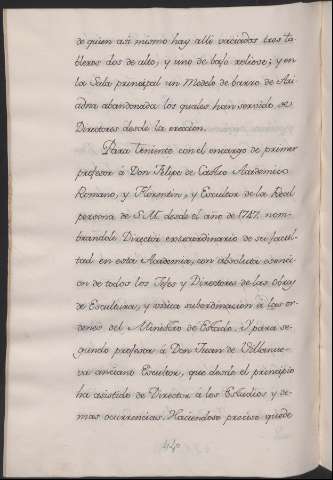 de quien asi mismo hay alli vaciados tres ta-
bleros dos de alto, y uno de bajo relieve; y en
la Sala principal un Modelo de barro de Ari
adna abandonada los quales han servido de
Directores desde la creacion.
Para teniente con el encargo de primer
profesor á Don Felipe de Castro Academico
Romano, y Florentin, y Escultor de la Real
persona de S.M. desde el año de 1747. nom-
brandole Director extraordinario de su facul-
tad en esta Academia, con absoluta esencion
de todos los Jefes y Directores de las Obras
de Escultura, y unica subordinacion á las or-
denes del Ministro de Estado. Y para se-
gundo profesor á Don Juan de Villanue-
va anciano Escultor, que desde el principio
ha asistido de Director á los Estudios y de-
mas ocurrencias. Haciendose preciso quede